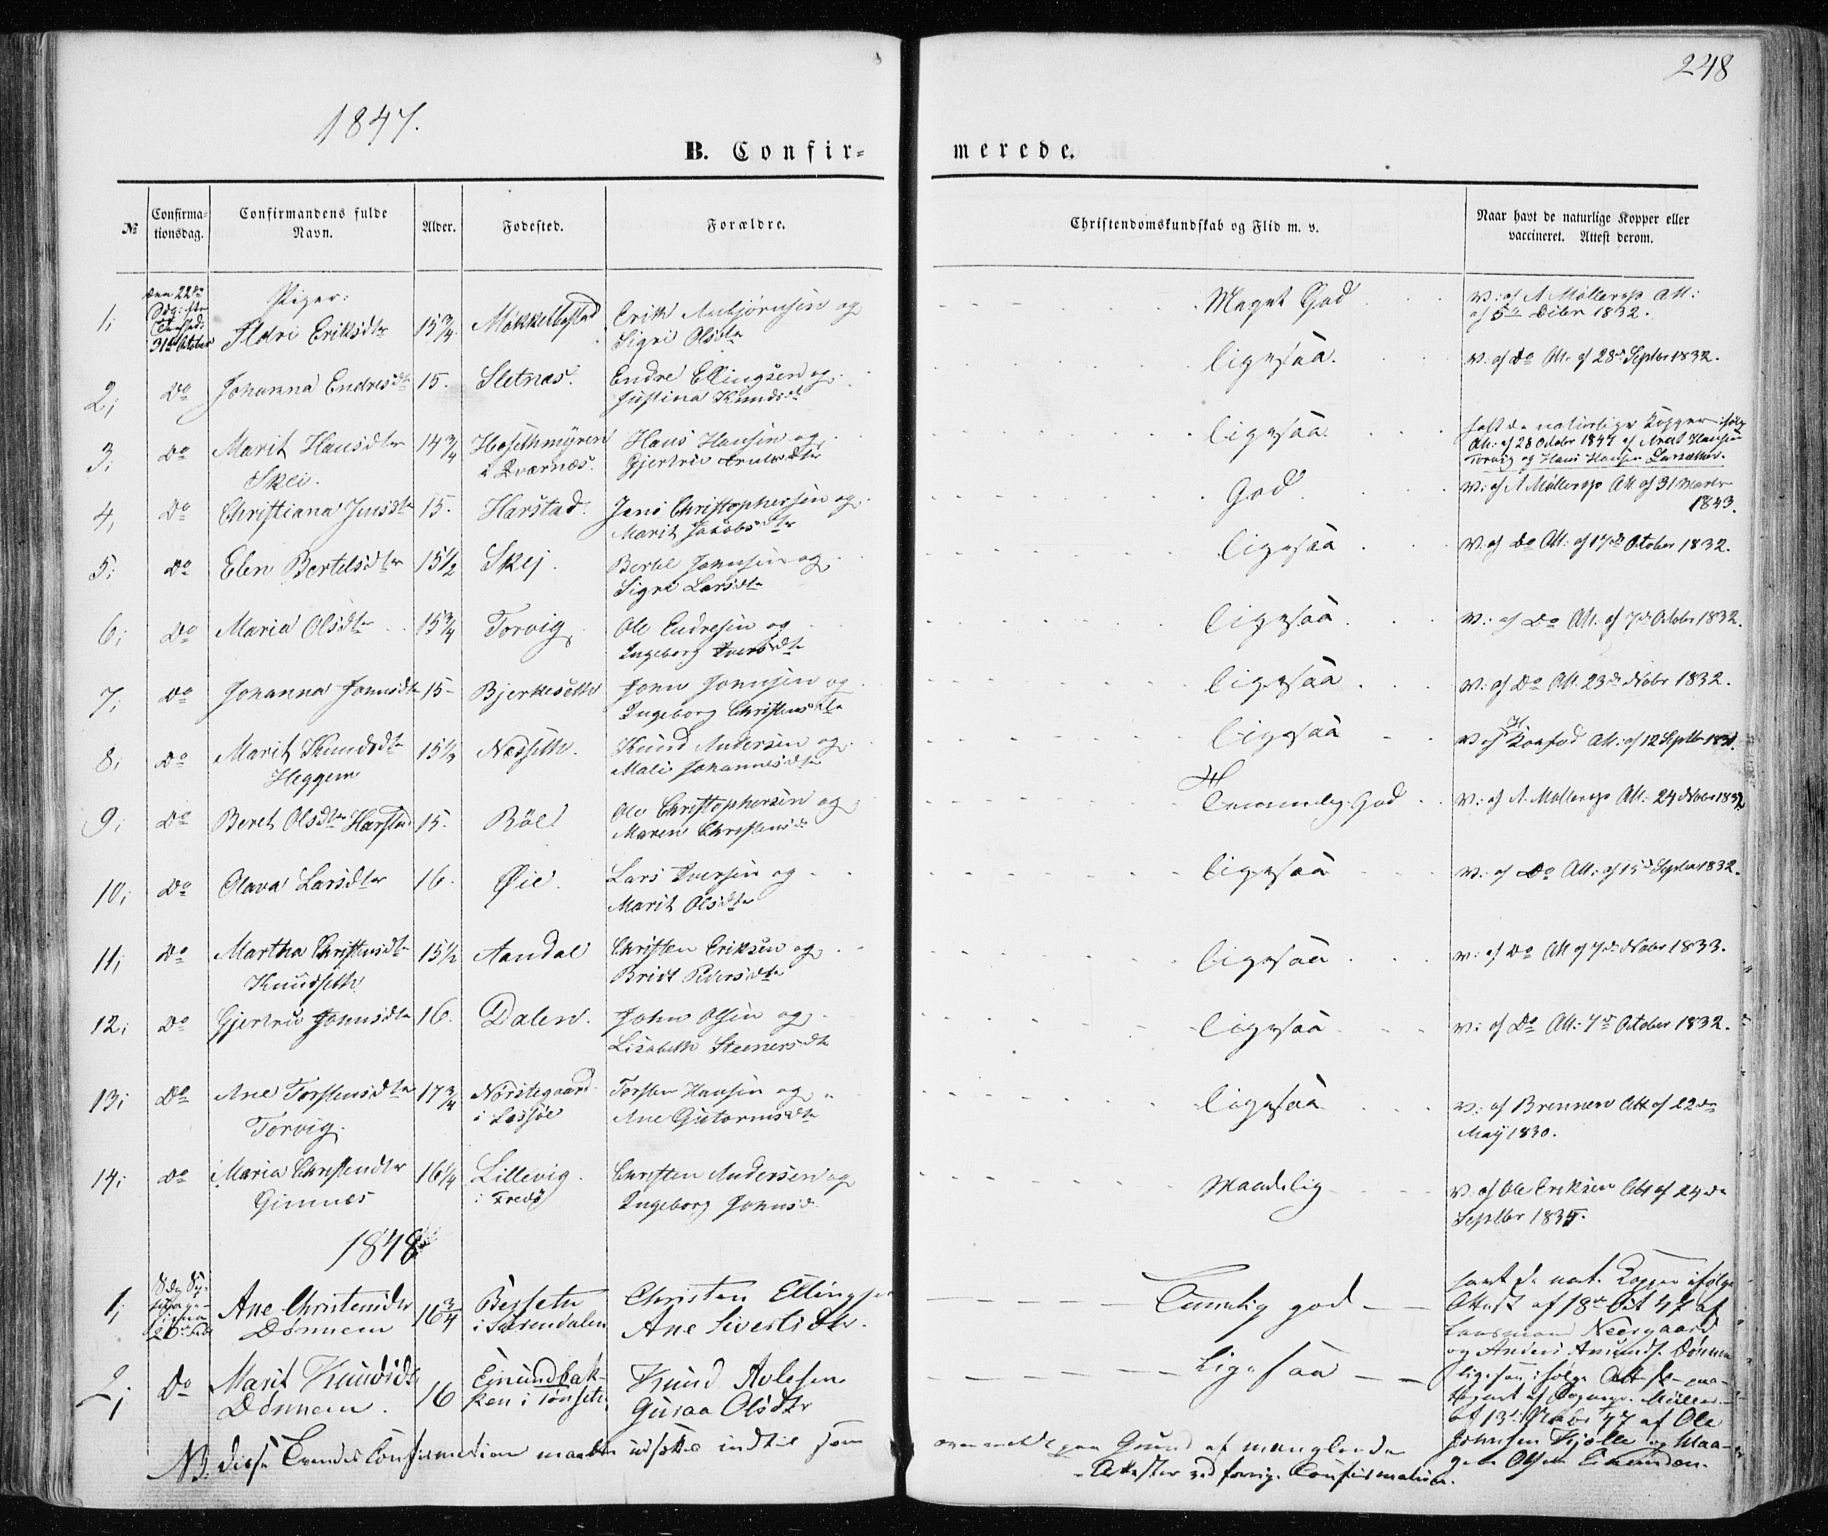 248
1847.
B. Confirmerede.
№ Confirmationsdag. Confirmandens fulde Navn. Alder. Fødested. Forældre. Christendomskundskab og Flid m. v. Naar havt de naturlige Kopper eller vaccineret. Attest derom.
Piger:
1; 31te October Ildri Eriksdtr 15 3/4 Mokkelbostad Erik Asbjørnsen og Sigri Olsdtr Meget God V: af A Møllerop Att: af 5te 1832.
2; Do Johanna Endresdtr 15. Sletnæs. Endre Ellingsen og Justina Knudsd ligesaa. V: af Do Att. af 28de Septbr 1832.
3; Do Marit Hansdtr Skei. 14 3/4 Hosethmyren i Qværnæs. Hans Hansen og Gjertrud ligesaa havt de naturlige Kopper ifølge Att: af 28 October 1847 af Arnt Hansen Torvig og Hans Hansen
4, Do Christiana Jensdtr 15. Harstad. Jens Christophersen og Marit Jakobsdtr God V: af A Møllerop Att af 31 Marts 1843.
5; Do Elen Bertelsdtr 15 1/2 Skej. Bertel Johnsen og Sigri Larsdtr ligesaa V. af Do Att. af 17de October 1832.
6; Do Maria Olsdtr 15 3/4 Torvig Ole Endresen og Ingeborg Iversdtr ligesaa V: af Do Att. af 7de October 1832.
7; Do Johanna Johnsdtr 15 Bjerkeseth John Johnsen og Ingeborg Christensdtr ligesaa V: af Do Att. 23de Novbr 1832.
8; Do Marit Knudsdtr Heggem 15 1/2 Næsseth. Knud Andersen og Mali Johannesdtr ligesaa V af Att: af 12 Septbr
9; Do Beret Olsdtr Harstad 15. Böe Ole Christophersen og Maren Christensd Temmelig God V: af A. Møllerop Att: 24 Novbr 1832
10; Do Olava Larsdtr 16. Øie. Lars Iversen og Marit Olsdtr ligesaa V: af Do Att: af 15de Septbr 1832.
11; Do Martha Christensdtr Knudseth 15 1/2 Aandal Christen Eriksen og Brit Pedersdtr ligesaa V: af Do Att af 7de Novbr 1833.
12; Do Gjertru Johnsdtr 16. Dalen. John Olsen og Lisabeth Steenersdtr ligesaa V: af Do Att: 7de October 1832.
13; Do Ane Torstensdtr Torvig. 17 3/4 Nørstegaard i Torsten Hansen og Ane Gutormsdtr ligesaa V: af Brennen Att af 22de May 1830.
14; Do Maria Christendtr Gimnæs 16 1/4 Lillevig i Fredö Christen Andersen og Ingeborg Johnsd Maadelig V. af Ole Eriksen Att af 24de Septbr 1835.
1848
1; Ane Christensdtr Dønnem 16 3/4 Besseth i Surendalen Christen Ellingsen Ane Sivertsdtr. Temelig god havt de nat. Kopper ifølge Attest af 18de Oct 47 af Lensmand Neergaard og Anders Amunds. Dønnem
2; Do Marit Knudsdtr Dønnem. 16 Einundbakken i Tønset Knud Avlesen Guraa Olsdtr ligesaa ligesaa ifølge Att 13de Novbr 47 af Ole Johnsen Kjølle og Olsen
NB. disse Tvendes Confirmation maatte udsættes indtil som ovenmeldt paa Grund af manglende Attester ved forrige Confirmation.